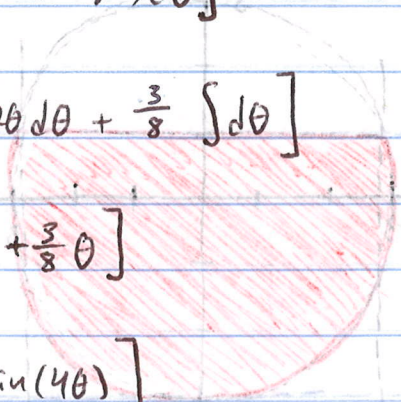 θ dθ + 3/8 ∫dθ]
+ 3/8 θ]
in(4θ)]